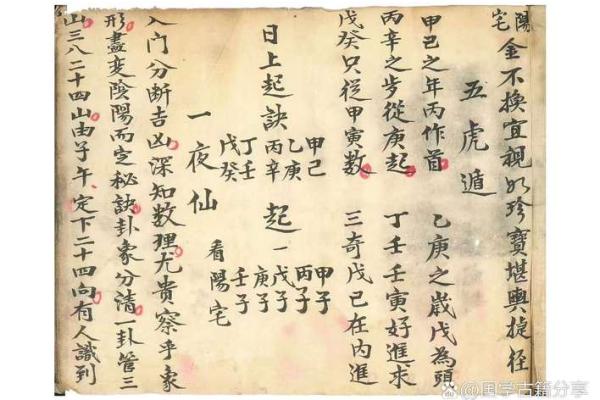 陽宅金不換宜視如珍寶堪輿捷徑
五虎遁
甲己之年丙作首 乙庚之歲戊為頭
丙辛之步從庚起 丁壬壬寅好進求
戊癸只從甲寅數 三奇戊己在內進
日上起訣
甲己
乙庚
丙辛
丁壬
戊癸
起一
甲子
丙子
戊子
庚子
壬子
一夜仙 看陽宅
入门分断吉凶深知数理尤贵察乎象
形盡变陰陽而定秘訣卦象分清一卦管三
山三八二十四山由子午定下二十四向有人識到
国学古籍分享